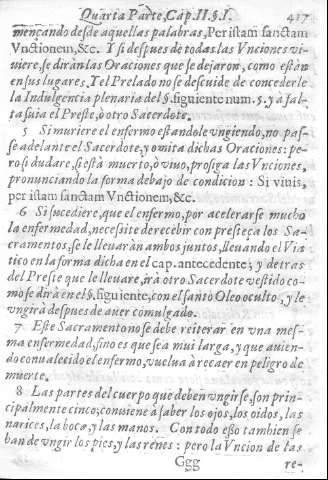 Quarta Parte, Cap. II. §. I. 417
mençando desde aquellas palabras, Per istam sanctam
Vnctionem, &c. Y si despues de todas las Vnciones vi-
uiere, se diràn las Oraciones que se dejaron, como estàn
en sus lugares. Y el Prelado no se descuide de concederle
la Indulgencia plenaria del §. siguiente num. 5. y à fal-
ta suia el Preste, ò otro Sacerdote.
5 Si muriere el enfermo estandole vngiendo, no pas-
se adelante el Sacerdote, y omita dichas Oraciones: pe-
ro si dudare, si està muerto, ò viuo, prosiga las Vnciones,
pronunciando la forma debajo de condicion: Si viuis,
per istam sanctam Vnctionem, &c.
6 Si sucediere, que el enfermo, por acelerarse mucho
la enfermedad, necessite de recebir con presteça los Sa-
cramentos, se le lleuaràn ambos juntos, lleuando el Via-
tico en la forma dicha en el cap. antecedente; y detras
del Preste que le lleuare, irà otro Sacerdote vestido co-
mo se dirà en el §. siguiente, con el santo Oleo oculto, y le
vngirà despues de auer comulgado.
7 Este Sacramento no se debe reiterar en vna mes-
ma enfermedad, sino es que sea mui larga, y que auien-
do conualecido el enfermo, vuelua à recaer en peligro de
muerte.
8 Las partes del cuerpo que deben vngirse, son prin-
cipalmente cinco; conuiene à saber los ojos, los oidos, las
narices, la boca, y las manos. Con todo esso tambien se
ban de vngir los pies, y las renes: pero la Vncion de las
Ggg re-